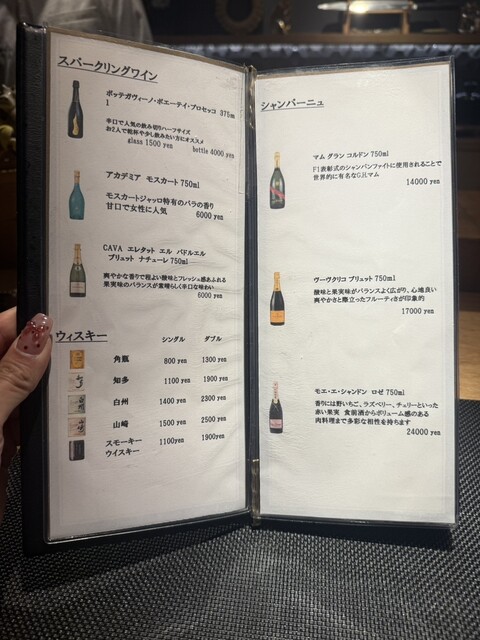 スパークリングワイン
ボッテガヴィーノ・ポエーティ・プロセッコ 375m
l
辛口で人気の飲み切りハーフサイズ
お2人で乾杯や少し飲みたい方にオススメ
glass 1500 yen bottle 4000 yen
アカデミア モスカート 750ml
モスカートジャッロ特有のバラの香り
甘口で女性に人気 6000 yen
CAVA エレタット エル パドルエル
ブリュット ナチューレ 750ml
爽やかな香りで程よい酸味とフレッシュ感あふれる
果実味のバランスが素晴らしく辛口な味わい
6000 yen
ウィスキー
シングル ダブル
角瓶 800 yen 1300 yen
知多 1100 yen 1900 yen
白州 1400 yen 2300 yen
山崎 1500 yen 2500 yen
スモーキー
ウイスキー 1100yen 1900yen
シャンパーニュ
マム グラン コルドン 750ml
F1表彰式のシャンパンファイトに使用されることで
世界的に有名なG.H.マム
14000 yen
ヴーヴクリコ ブリュット 750ml
酸味と果実味がバランスよく広がり、心地良い
爽やかさと際立ったフルーティさが印象的
17000 yen
モエ・エ・シャンドン ロゼ 750ml
香りには野いちご、ラズベリー、チェリーといった
赤い果実 食前酒からボリューム感のある
肉料理まで多彩な相性を持ちます
24000 yen